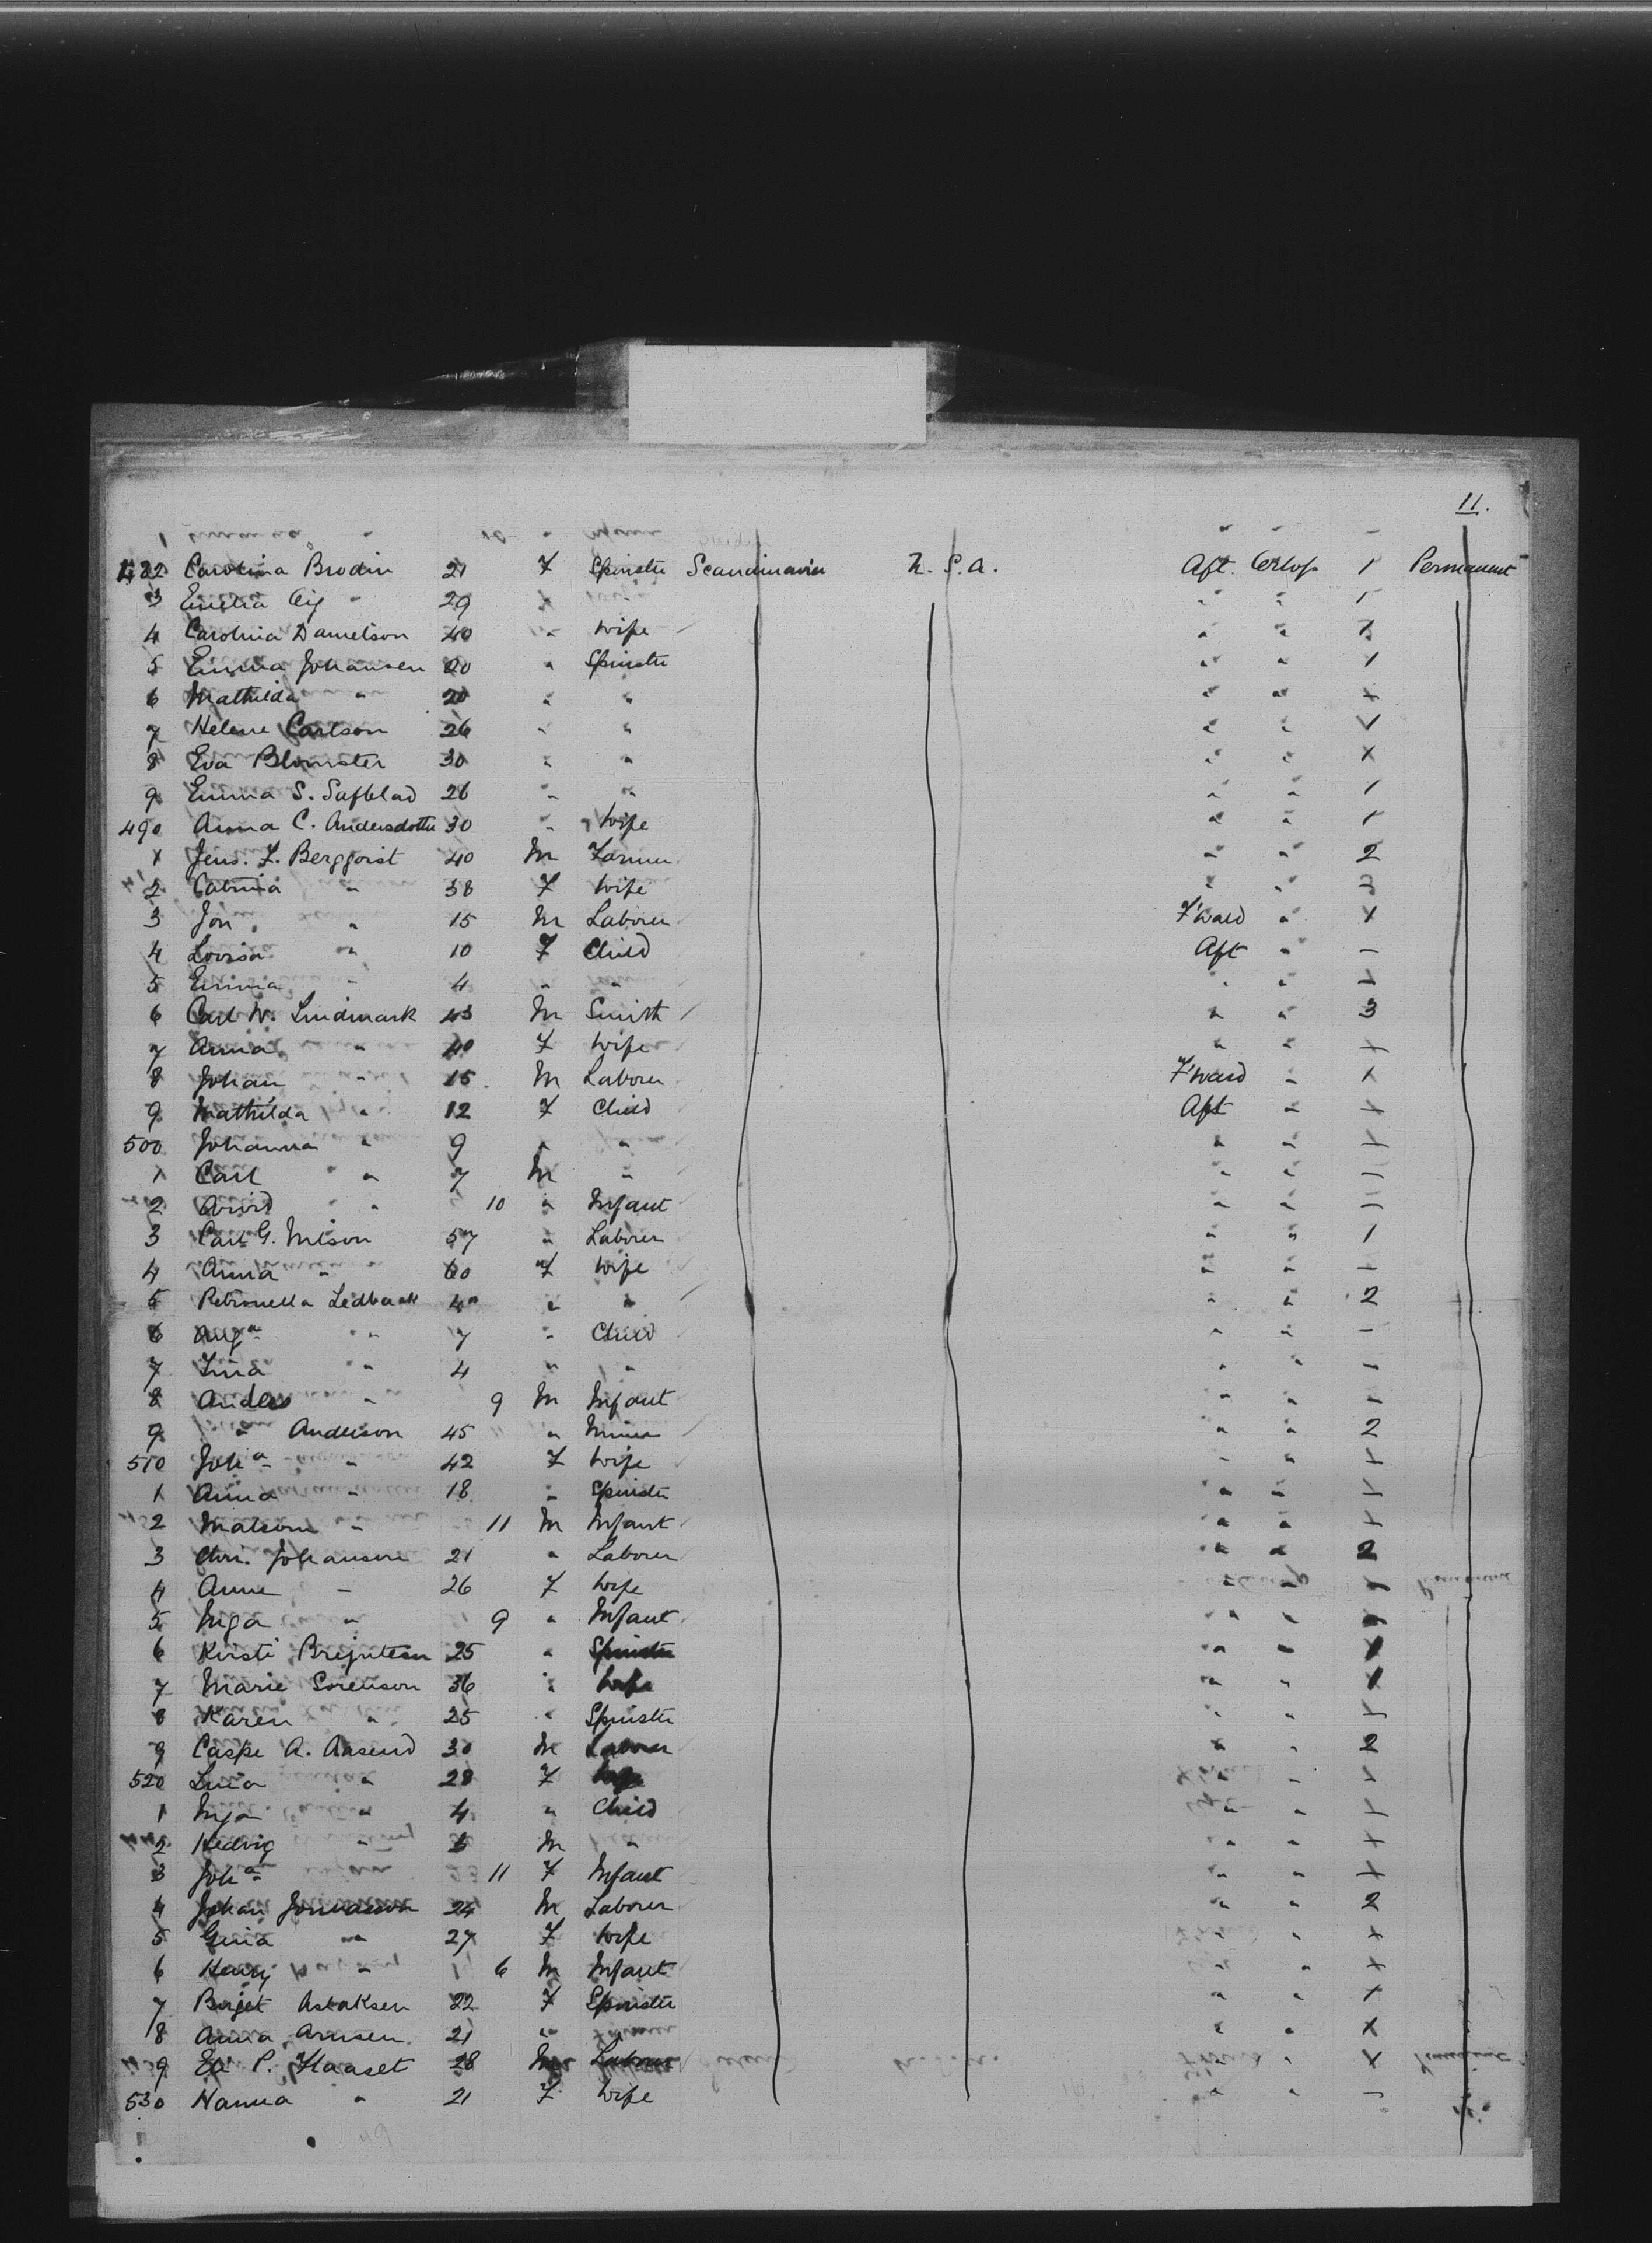 11.
482 Carolina Brodin 21 F Spinster Scandinavia U.S.A. Aft. Orlop 1 Permanent
3 Emelia " 29 " " " 1
4 Carolina Danielson 40 " Wife " " 1
5 Emma Johansen 20 " Spinster " " 1
6 Mathilda " 20 " " " " 1
7 Helene Carlson 26 " " " " 1
8 Eva Blomster 30 " " " " 1
9 Emma S. Safblad 26 " " " " 1
490 Anna C. Andersdotter 30 " Wife " " 1
1 Jens. F. Bergqvist 40 M Farmer " " 2
2 Catrina " 38 F Wife " "
3 Jon " 15 M Laborer F'ward " 1
4 Lovisa " 10 F Child Aft " -
5 Emma " 4 " " " " -
6 Carl W. Lindmark 43 M Smith " " 3
7 Anna " 40 F Wife " "
8 Johan " 15 M Laborer F'ward " 1
9 Mathilda " 12 F Child Aft "
500 Johanna " 9 " " " "
1 Carl " 7 M " " "
2 Arvid " 10 " Infant " "
3 Carl G. Nilson 57 " Laborer " " 1
4 Anna " 60 F Wife " " -
5 Petronella 40 " " " " 2
6 Aug^a " 7 " Child " " -
7 Lina " 4 " " " " -
8 Anders " 9 M Infant " " -
9 " Anderson 45 " Miner " " 2
510 Joh^a " 42 F Wife " "
1 Anna " 18 " Spinster " "
2 Malcom " 11 M Infant " "
3 Chri. Johansen 21 " Laborer " " 2
4 Anne " 26 F Wife " "
5 Inga " 9 " Infant " "
6 Kirsti 25 " Spinster " " 1
7 Marie Sorenson 36 " Wife " " 1
8 Karen " 25 " Spinster " "
9 Caspe A. Aasend 30 M Laborer " " 2
520 Lina " 28 F Wife " "
1 Inga " 4 " Child " "
2 Hedvig " M " " "
3 Joh^a " 11 F Infant " "
4 Johan 24 M Laborer " " 2
5 Gina " 27 F Wife " "
6 Henry " 6 M Infant " "
7 Birjet Aslaksen 22 F Spinster " " 1
8 Anna Arnsen 21 " " " 1
9 P. Haaset 28 M Laborer " " 1
530 Hanna " 21 F Wife " " -